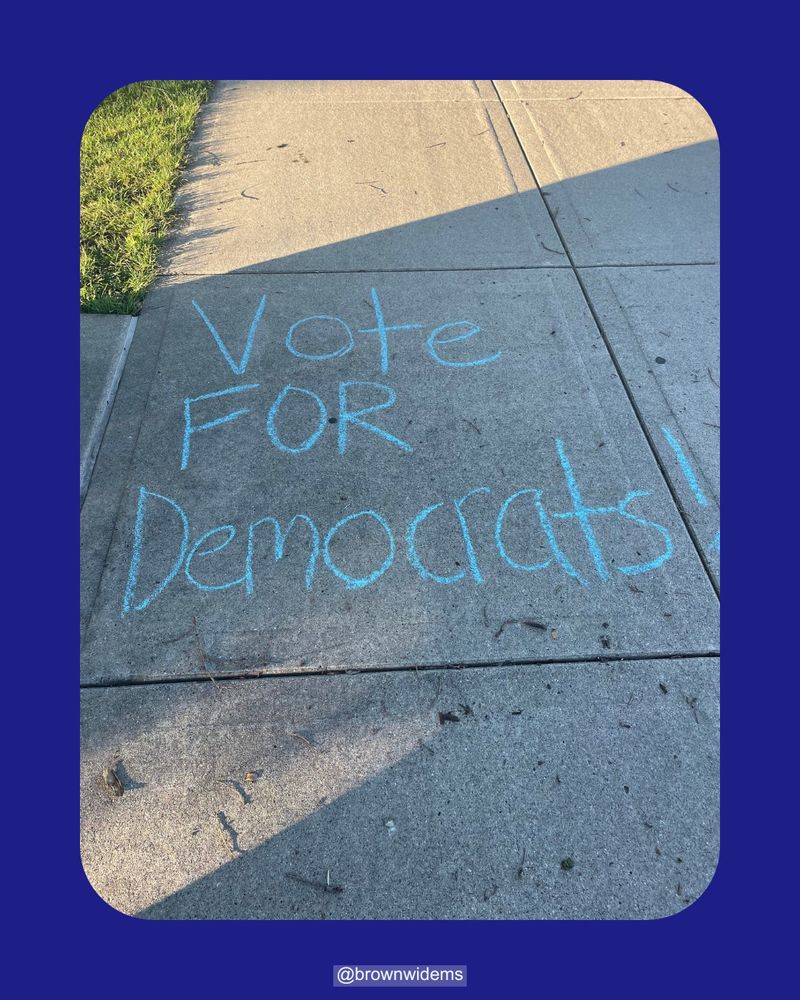 Vote
FOR
Democrats!
@brownwidems